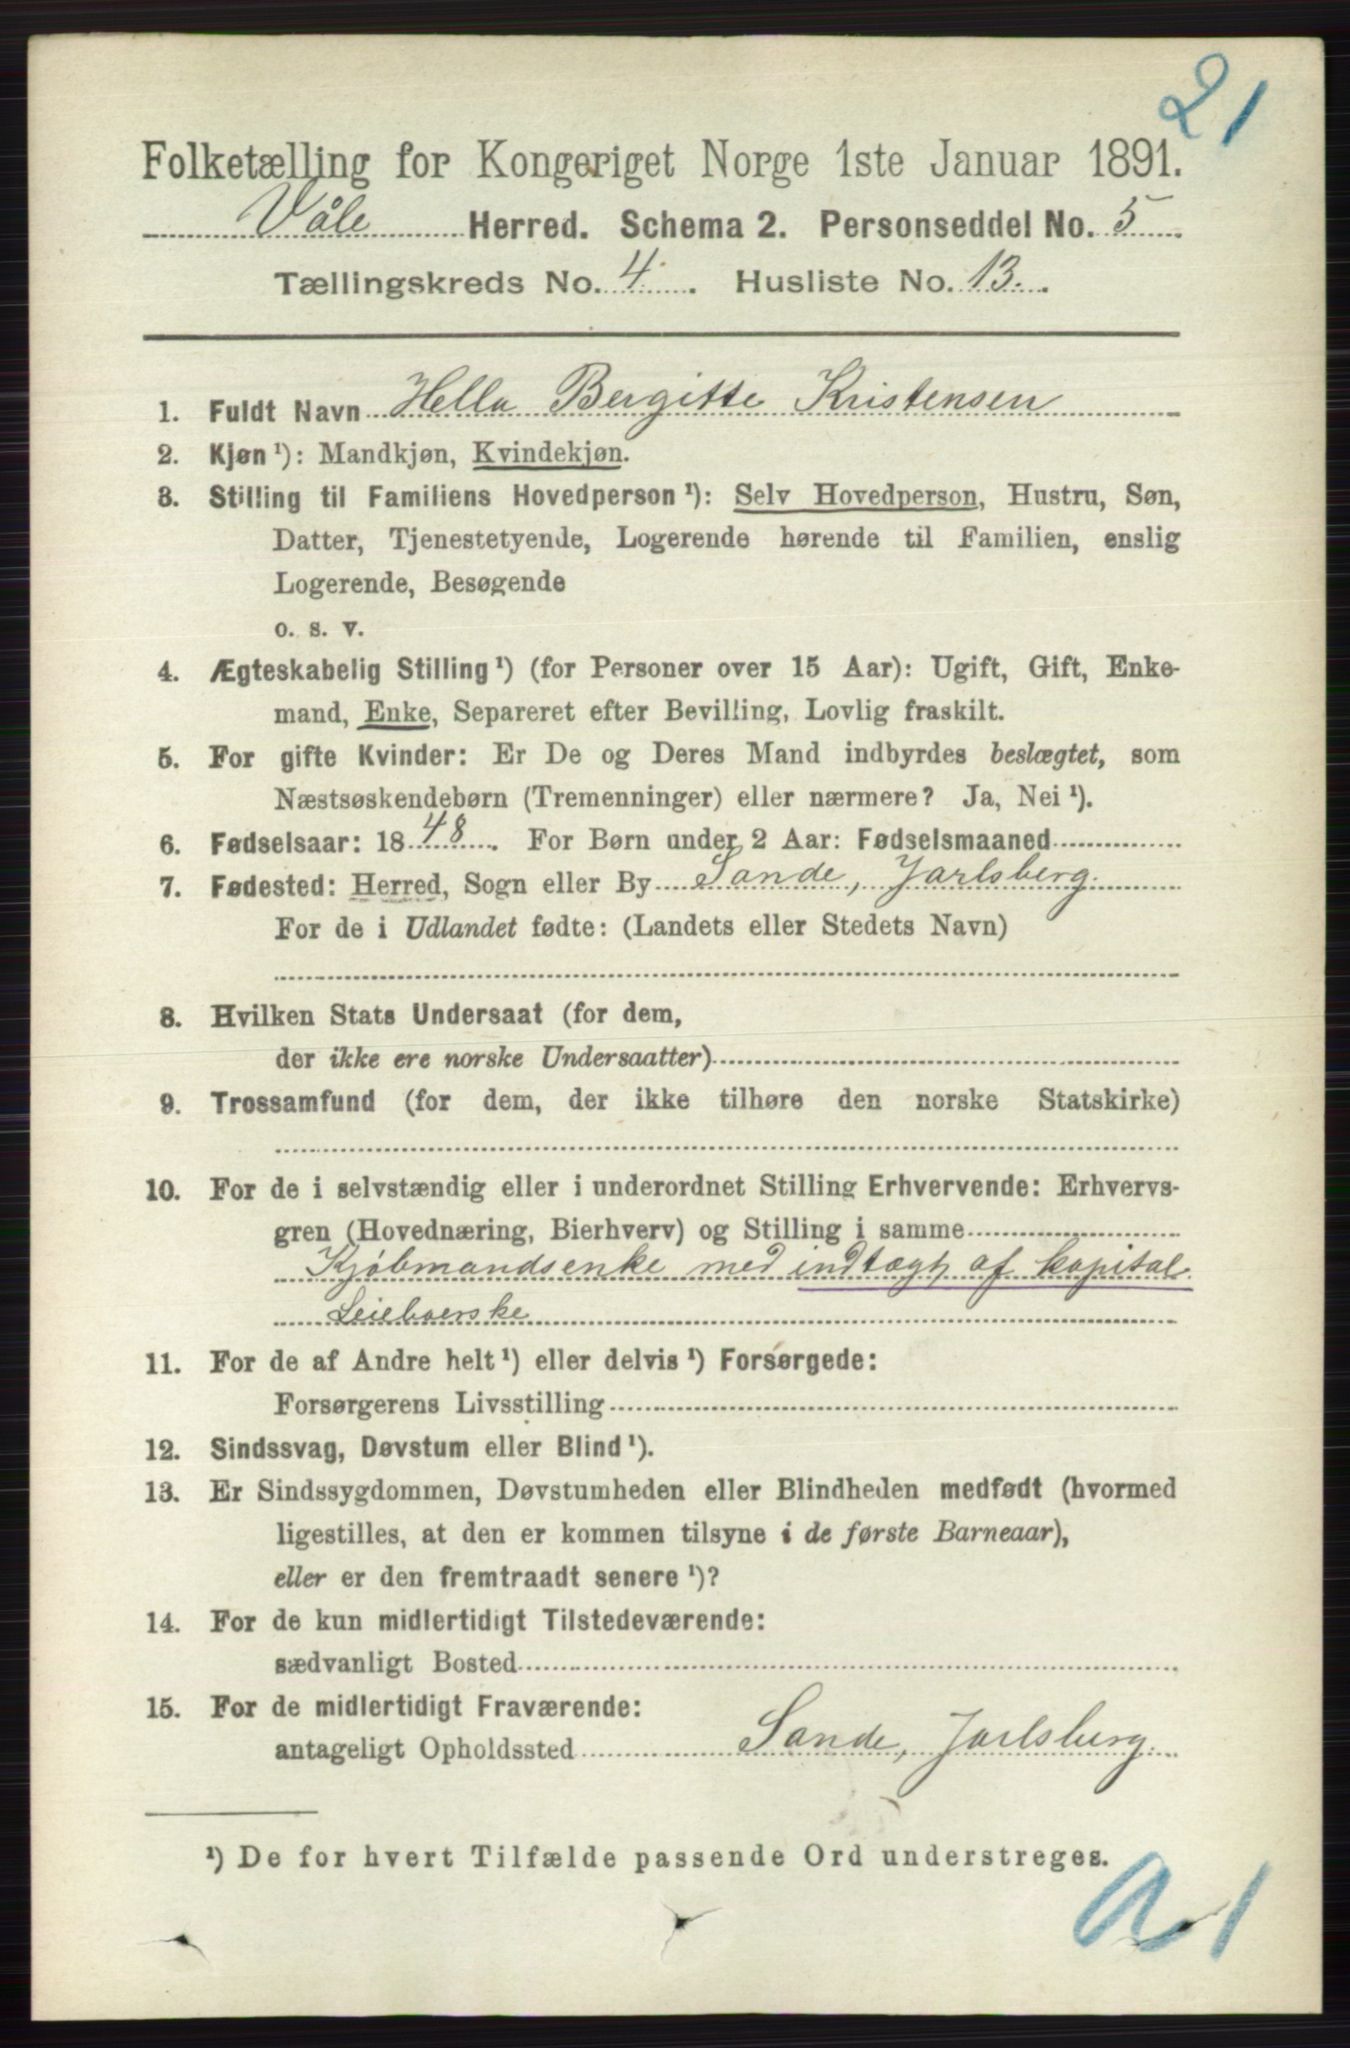 21
Folketælling for Kongeriget Norge 1ste Januar 1891.
Våle Herred. Schema 2. Personseddel No. 5
Tællingskreds No. 4. Husliste No. 13.
1. Fuldt Navn Hella Bergitte Kristensen
2. Kjøn ¹): Mandkjøn, Kvindekjøn.
3. Stilling til Familiens Hovedperson ¹): Selv Hovedperson, Hustru, Søn,
Datter, Tjenestetyende, Logerende hørende til Familien, enslig
Logerende, Besøgende
o. s. v.
4. Ægteskabelig Stilling ¹) (for Personer over 15 Aar): Ugift, Gift, Enke-
mand, Enke, Separeret efter Bevilling, Lovlig fraskilt.
5. For gifte Kvinder: Er De og Deres Mand indbyrdes beslægtet, som
Næstsøskendebørn (Tremenninger) eller nærmere? Ja, Nei ¹).
6. Fødselsaar: 1848. For Børn under 2 Aar: Fødselsmaaned
7. Fødested: Herred, Sogn eller By Sande, Jarlsberg.
For de i Udlandet fødte: (Landets eller Stedets Navn)
8. Hvilken Stats Undersaat (for dem,
der ikke ere norske Undersaatter)
9. Trossamfund (for dem, der ikke tilhøre den norske Statskirke)
10. For de i selvstændig eller i underordnet Stilling Erhvervende: Erhvervs-
gren (Hovednæring, Bierhverv) og Stilling i samme
Kjøbmandsenke med indtægt af kapital
Leieboerske
11. For de af Andre helt ¹) eller delvis ¹) Forsørgede:
Forsørgerens Livsstilling
12. Sindssvag, Døvstum eller Blind ¹).
13. Er Sindssygdommen, Døvstumheden eller Blindheden medfødt (hvormed
ligestilles, at den er kommen tilsyne i de første Barneaar),
eller er den fremtraadt senere ¹)?
14. For de kun midlertidigt Tilstedeværende:
sædvanligt Bosted
15. For de midlertidigt Fraværende:
antageligt Opholdssted Sande, Jarlsberg.
¹) De for hvert Tilfælde passende Ord understreges.
a 1